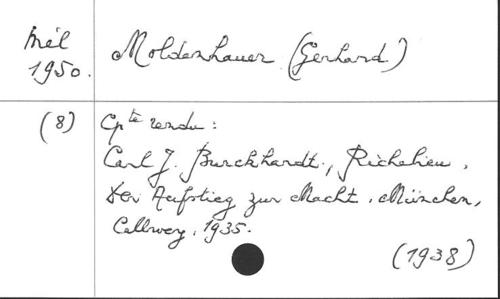 Mél
1950.
Moldenhauer (Gerhard)
(8)
Cpte rendu :
Carl J. Burckhardt, Richelieu,
Der Aufstieg zur Macht, München,
Callwey, 1935.
(1938)